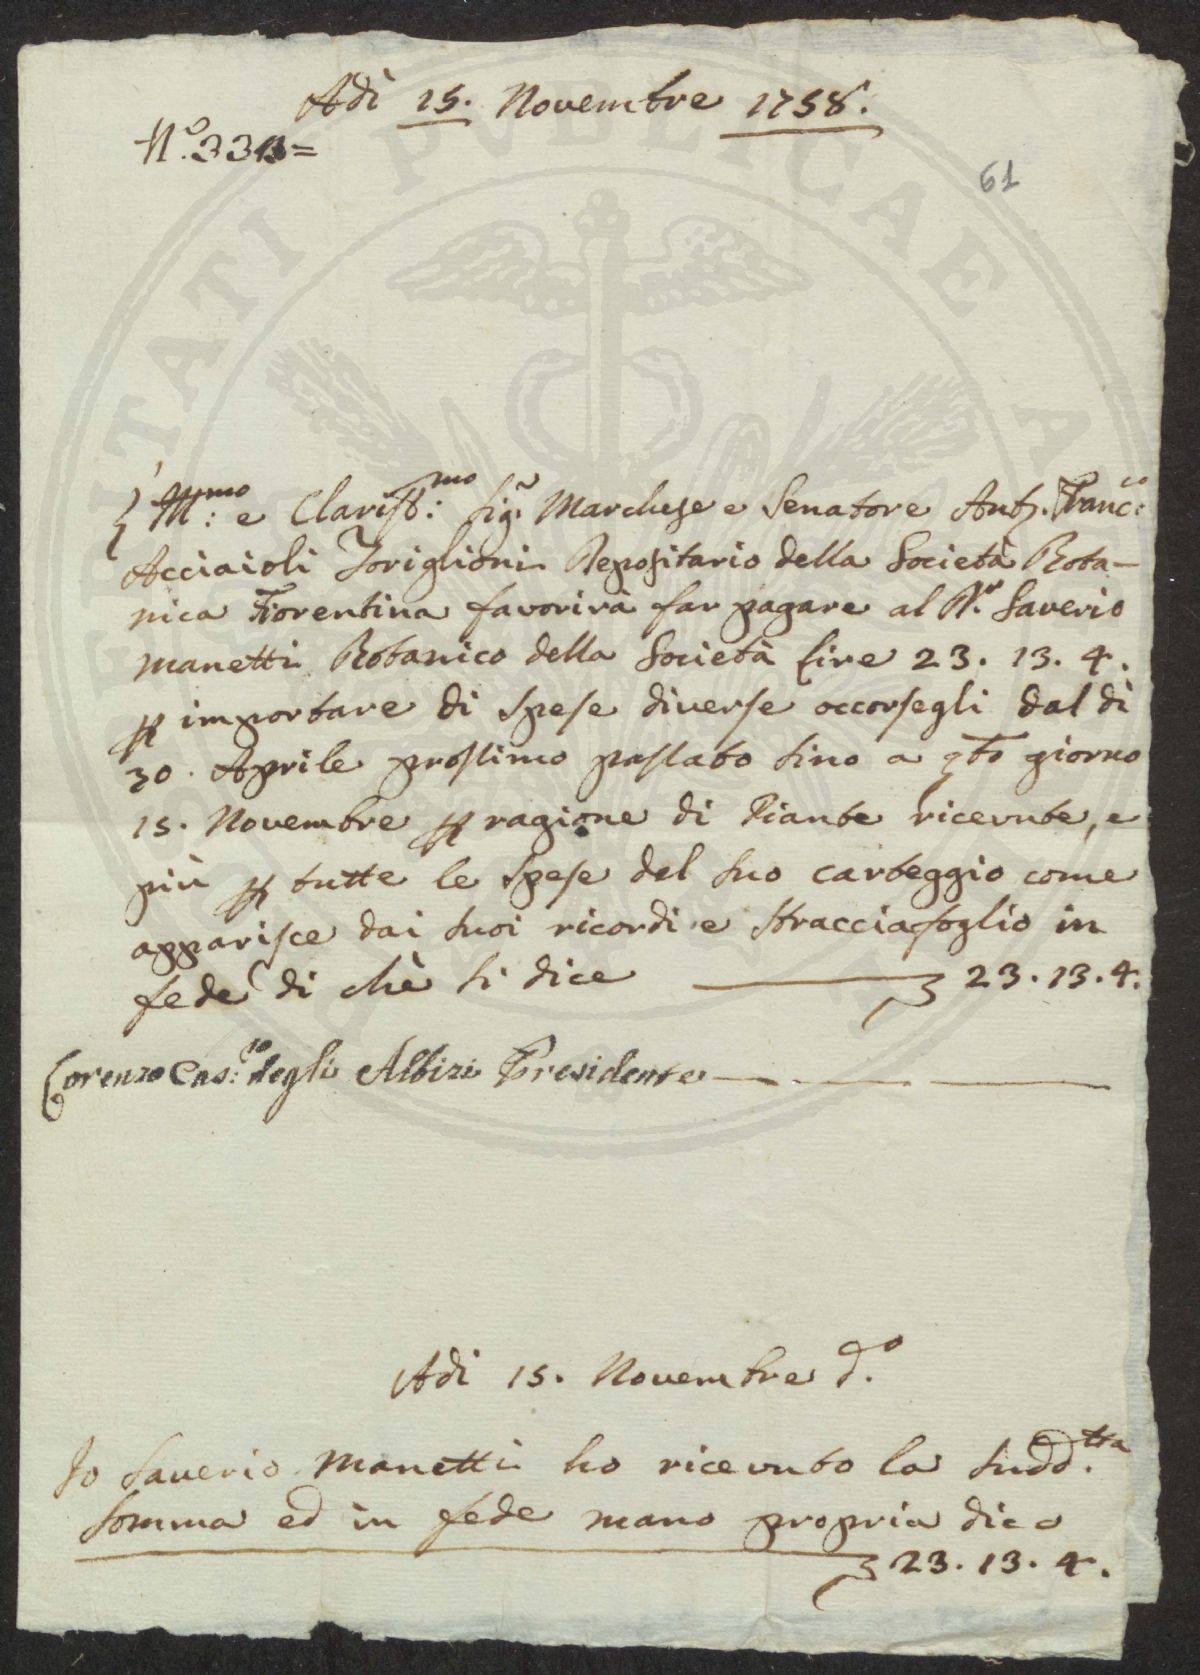 Adì 15. Novembre 1758.
N.° 33
61
Ill.mo: e Clariss.mo: Sig.r Marchese e Senatore Ant.o Franc.co:
Acciaioli Toriglioni Depositario della Società Bota-
nica Fiorentina favorirà far pagare al D.r Saverio
Manetti Botanico della Società lire 23. 13. 4.
p importare di spese diverse occorsegli dal dì
30. Aprile prossimo passato sino a q.to giorno
15. Novembre p ragione di Piante ricevute, e
più p tutte le spese del suo carteggio come
apparisce dai suoi ricordi e stracciafoglio in
fede di chè si dice 23. 13. 4.
Lorenzo Gas.ro: degli Albizi Presidente
Adì 15. Novembre d.°
Io Saverio Manetti ho ricevuto la sudd.tta
somma ed in fede mano propria dico
23. 13. 4.
PVBLICAE